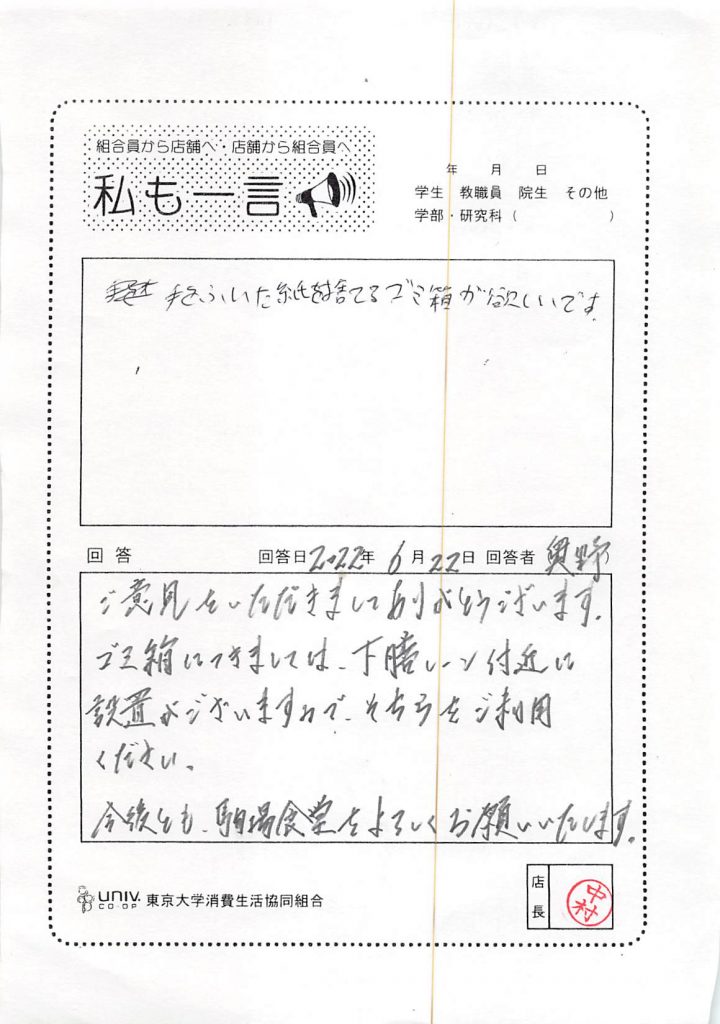 組合員から店舗へ・店舗から組合員へ
私も一言
年 月 日
学生 教職員 院生 その他
学部・研究科( )
手をふいた紙を捨てるゴミ箱が欲しいです
回答 回答日2022年6月22日 回答者 奥野
ご意見をいただきましてありがとうございます。
ゴミ箱につきましては、下膳レーン付近に
設置がございますので、そちらをご利用
ください。
今後とも、駒場食堂をよろしくお願いいたします。
UNIV.
CO-OP
東京大学消費生活協同組合
店長
中村